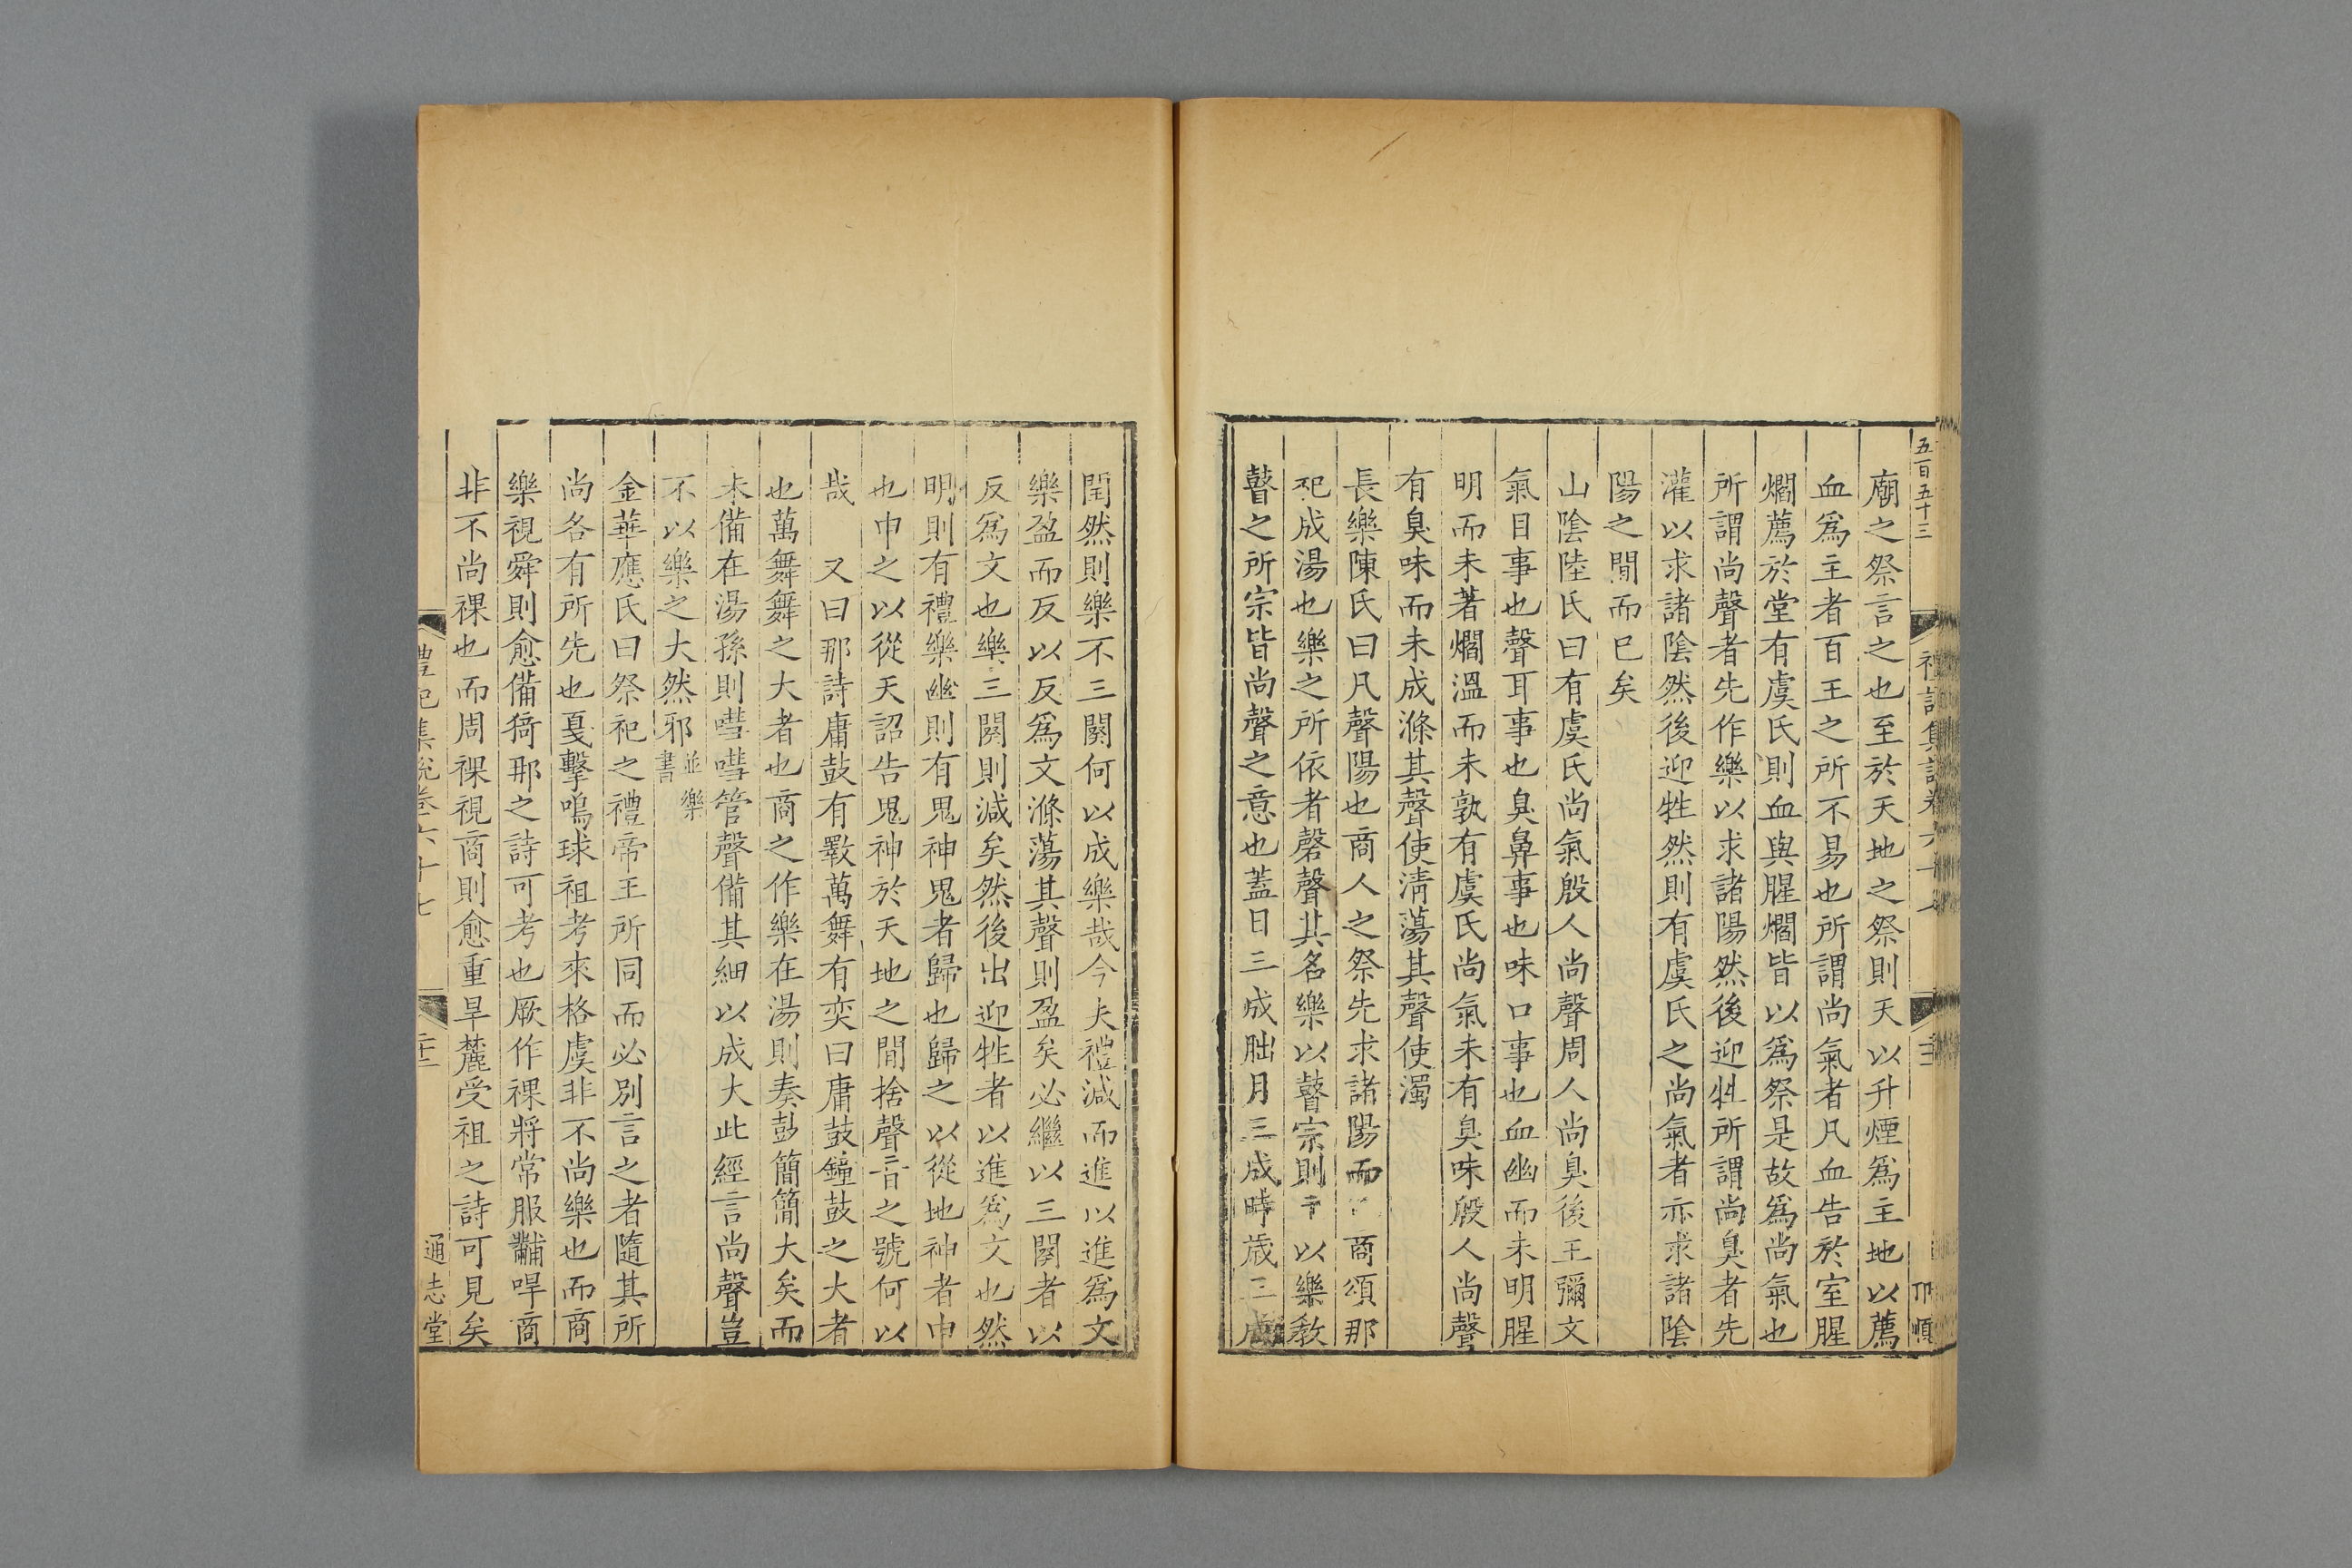 五百五十三
廟之祭言之也至於天地之祭則天以升煙爲主地以薦
血爲主者百王之所不易也所謂尚氣者凡血告於室腥
爓薦於堂有虞氏則血與腥爓皆以爲祭是故爲尚氣也
所謂尚聲者先作樂以求諸陽然後迎牲所謂尚臭者先
灌以求諸陰然後迎牲然則有虞氏之尚氣者亦求諸陰
陽之閒而已矣
山陰陸氏曰有虞氏尚氣殷人尚聲周人尚臭後王彌文
氣目事也聲耳事也臭鼻事也味口事也血幽而未明腥
明而未著爓溫而未孰有虞氏尚氣未有臭味殷人尚聲
有臭味而未成滌其聲使清蕩其聲使濁
長樂陳氏曰凡聲陽也商人之祭先求諸陽而 商頌那
祀成湯也樂之所依者磬聲其名樂以瞽宗則 以樂敎
瞽之所宗皆尚聲之意也蓋日三成朏月三成時歲三成
閏然則樂不三闋何以成樂哉今夫禮減而進以進爲文
樂盈而反以反爲文滌蕩其聲則盈矣必繼以三闋者以
反爲文也樂三闋則減矣然後出迎牲者以進爲文也然
明則有禮樂幽則有鬼神鬼者歸也歸之以從地神者申
也申之以從天詔告鬼神於天地之閒捨聲音之號何以
哉　又曰那詩庸鼓有斁萬舞有奕曰庸鼓鐘鼓之大者
也萬舞舞之大者也商之作樂在湯則奏鼓簡簡大矣而
未備在湯孫則嘒嘒管聲備其細以成大此經言尚聲豈
不以樂之大然邪並樂書
金華應氏曰祭祀之禮帝王所同而必別言之者隨其所
尚各有所先也戛擊鳴球祖考來格虞非不尚樂也而商
樂視舜則愈備猗那之詩可考也厥作祼將常服黼冔商
非不尚祼也而周祼視商則愈重旱麓受祖之詩可見矣
禮記集說卷六十七
通志堂